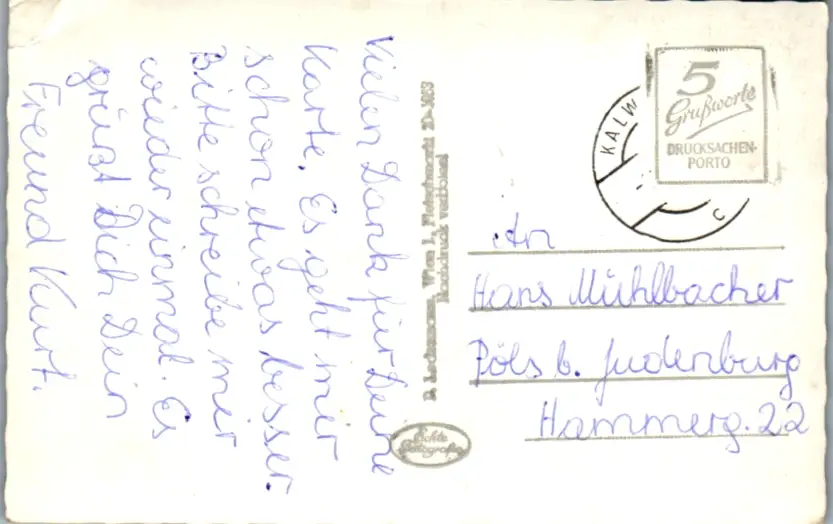 Vielen Dank für Deine
Karte. Es geht mir
schon etwas besser.
Bitte schreibe mir
wieder einmal. Es
grüßt Dich Dein
Freund Kurt.
Wien I., Fleischmarkt
Nachdruck verboten!
Echte
KALW
C
5
Grußworte
DRUCKSACHEN-
PORTO
An
Hans Mühlbacher
Pöls b. Judenburg
Hammerg. 22